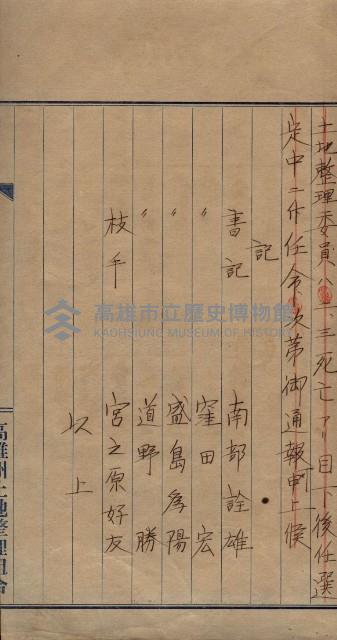 土地整理委員ハ一、三死亡アリ目下後任選
定中ニ付任命次第御通報可申上候
記
書記 南部詮雄
〃 窪田宏
〃 盛島為陽
〃 道野勝
技手 宮之原好友
以上
高雄州土地整理組合
高雄市立歷史博物館
KAOHSIUNG MUSEUM OF HISTORY